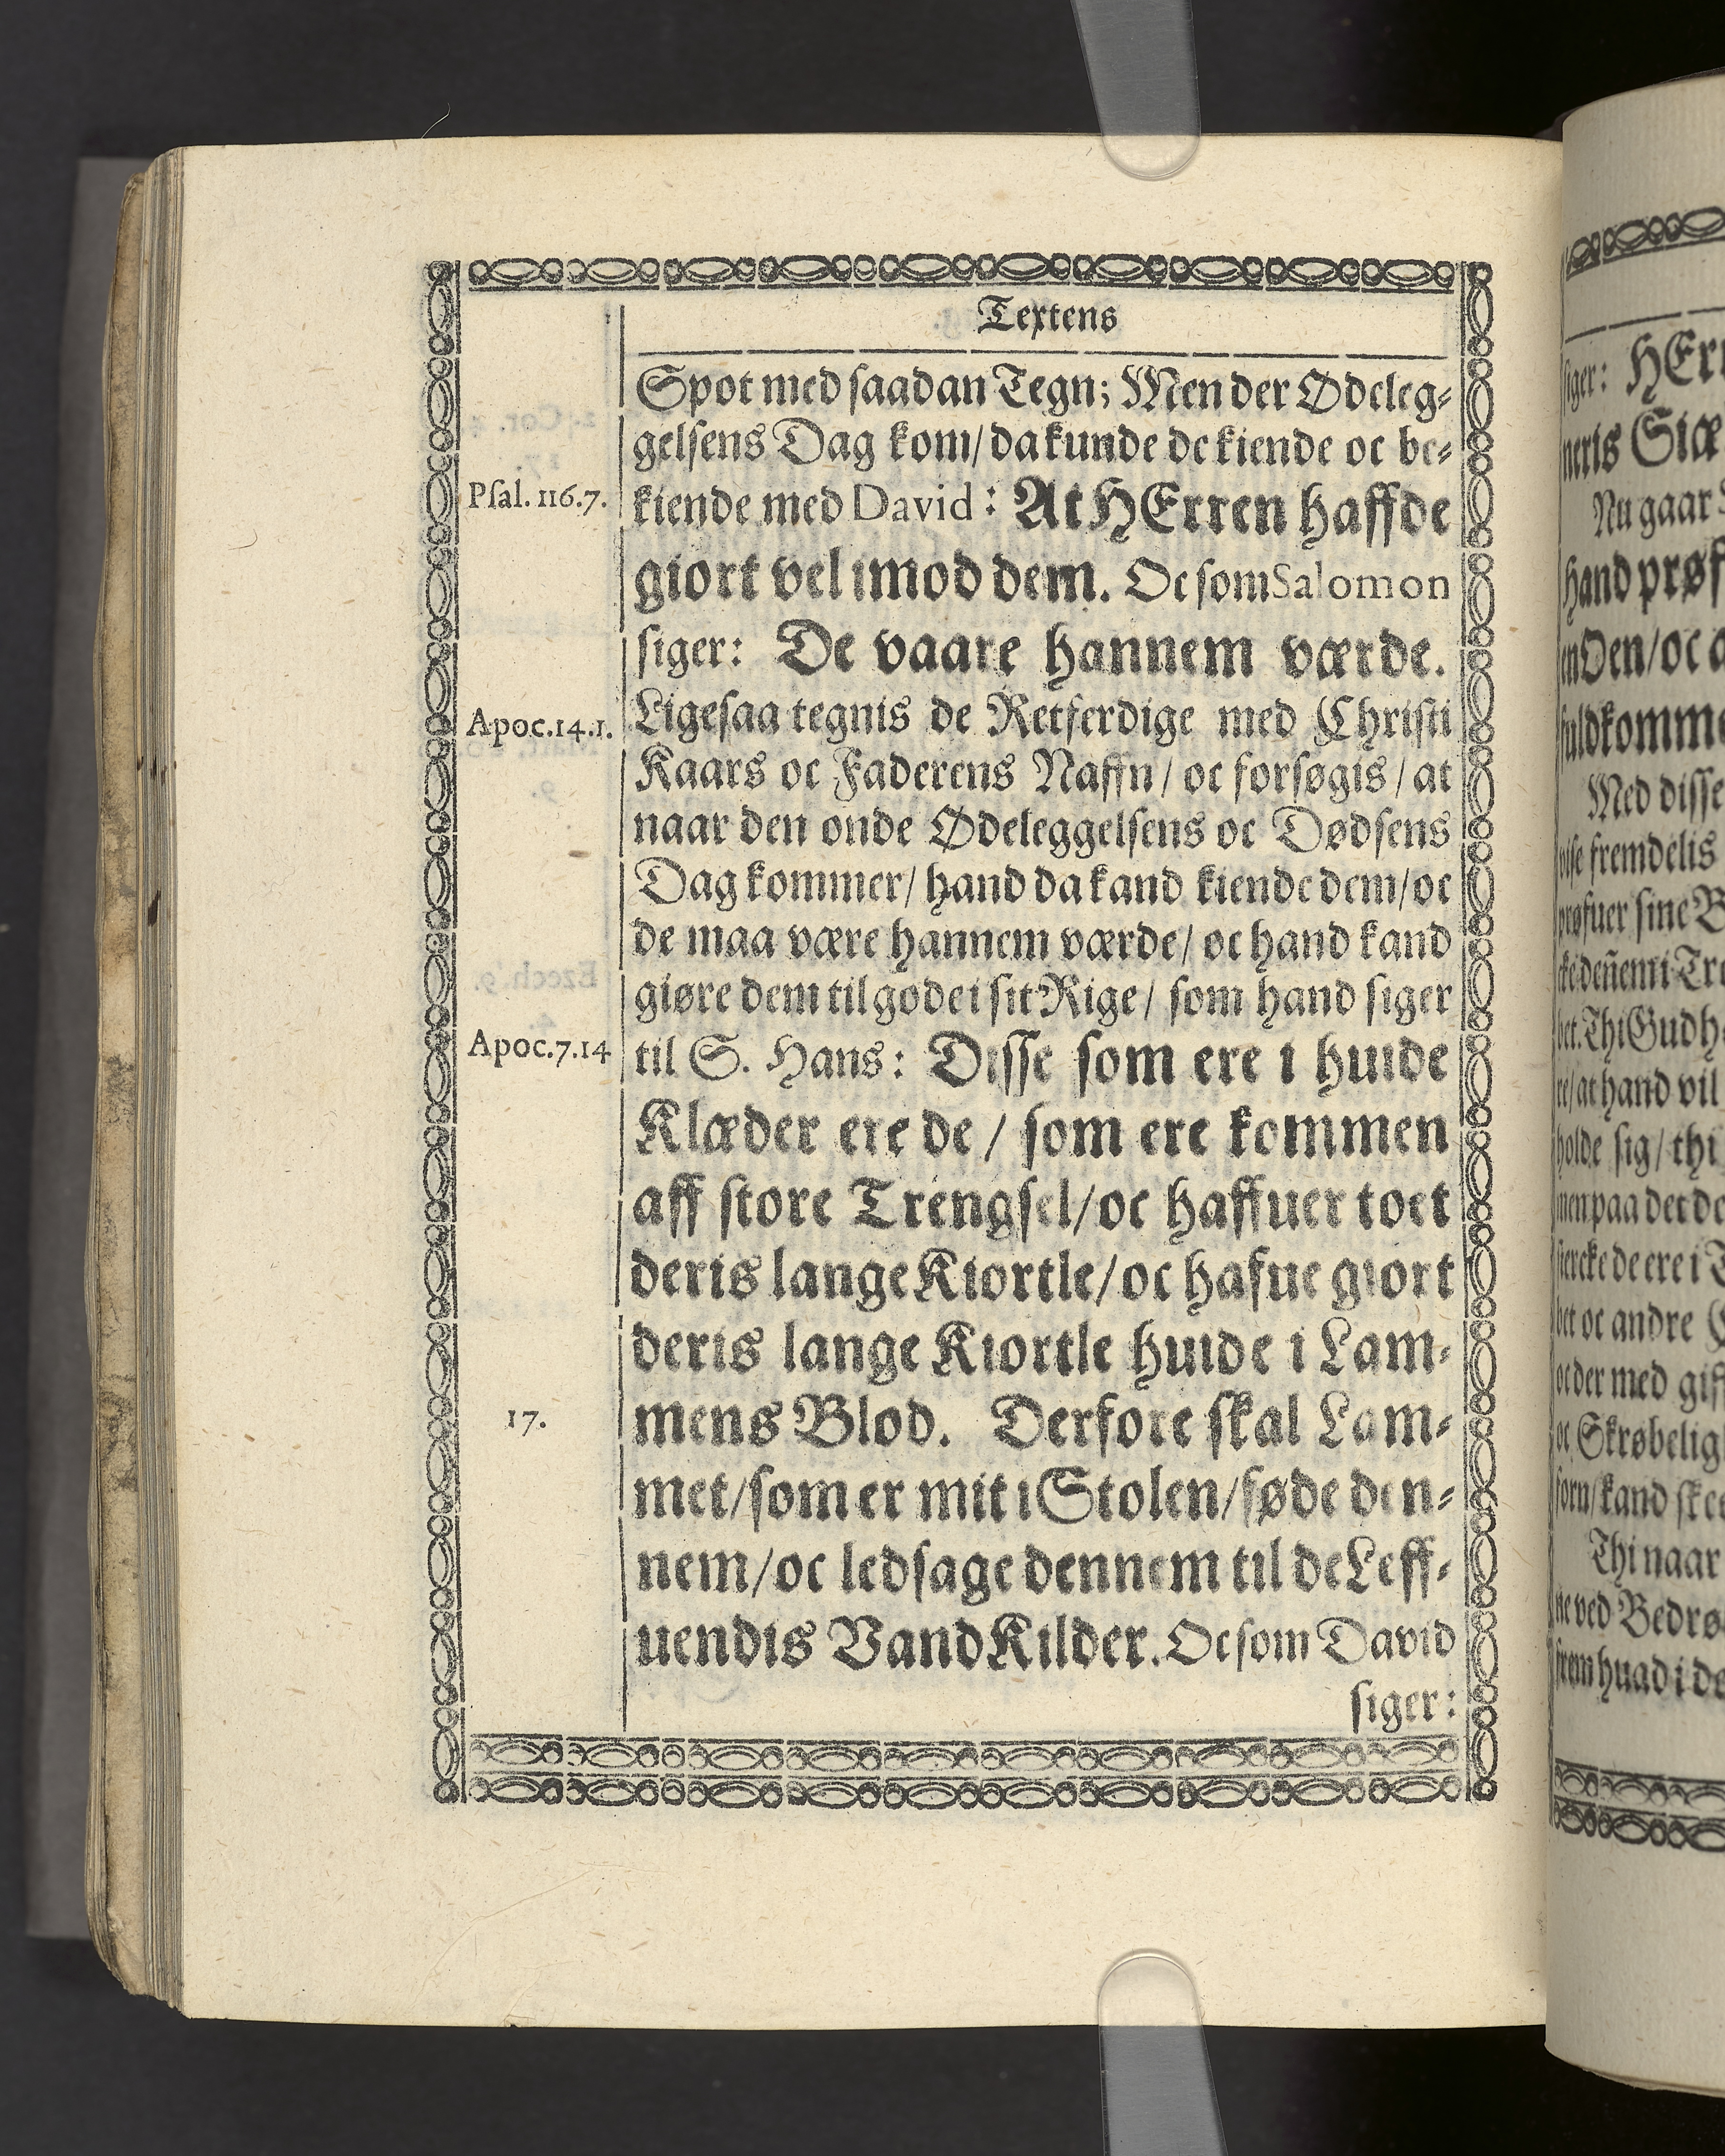 Textens
Spot med saadan Tegn; Men der Ødeleg-
gelsens Dag kom/ da kunde de kiende oc be-
Psal. 116.7.
kiende med David: At HErren haffde
giort vel imod dem. Oc som Salomon
siger: De vaare hannem værde.
Apoc. 14.1.
Ligesaa tegnis de Retferdige med Christi
Kaars oc Faderens Naffn/ oc forsøgis/ at
naar den onde Ødeleggelsens oc Dødsens
Dag kommer/ hand da kand kiende dem/ oc
de maa være hannem værde/ oc hand kand
giøre dem til gode i sit Rige/ som hand siger
Apoc. 7.14
til S. Hans: Disse som ere i huide
Klæder ere de/ som ere kommen
aff store Trengsel/ oc haffuer toet
deris lange Kiortle/ oc hafue giort
deris lange Kiortle huide i Lam-
17.
mens Blod. Derfore skal Lam-
met/ som er mit i Stolen/ føde den-
nem/ oc ledsage dennem til de Leff-
uendis Vand Kilder. Oc som David
siger:
siger: HErr
neris
Nu gaar
hand prøf
en Den/ oc a
fuldkomme
Med disse
vise fremdelis
prøfuer sine B
bet. Thi Gud h
re/ at hand vil
holde sig/ thi
men paa det de
stercke de ere i
bet oc andre
oc der med gif
oc Skrøbelig
forn/ kand skee
Thi naar
ne ved Bedrø
frem huad i de